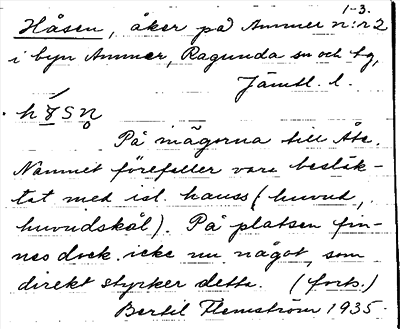 1-3.
Håsen, åker på Ammer n:r 2
i byn Ammer, Ragunda sn och tg,
Jämtl. l.
På mägorna till Åke.
Namnet förefaller vara besläk-
tat med isl. hauss (huvud,
huvudskål). På platsen fin-
nes dock icke nu något, som
direkt styrker detta. (forts.)
Bertil Flemström 1935.